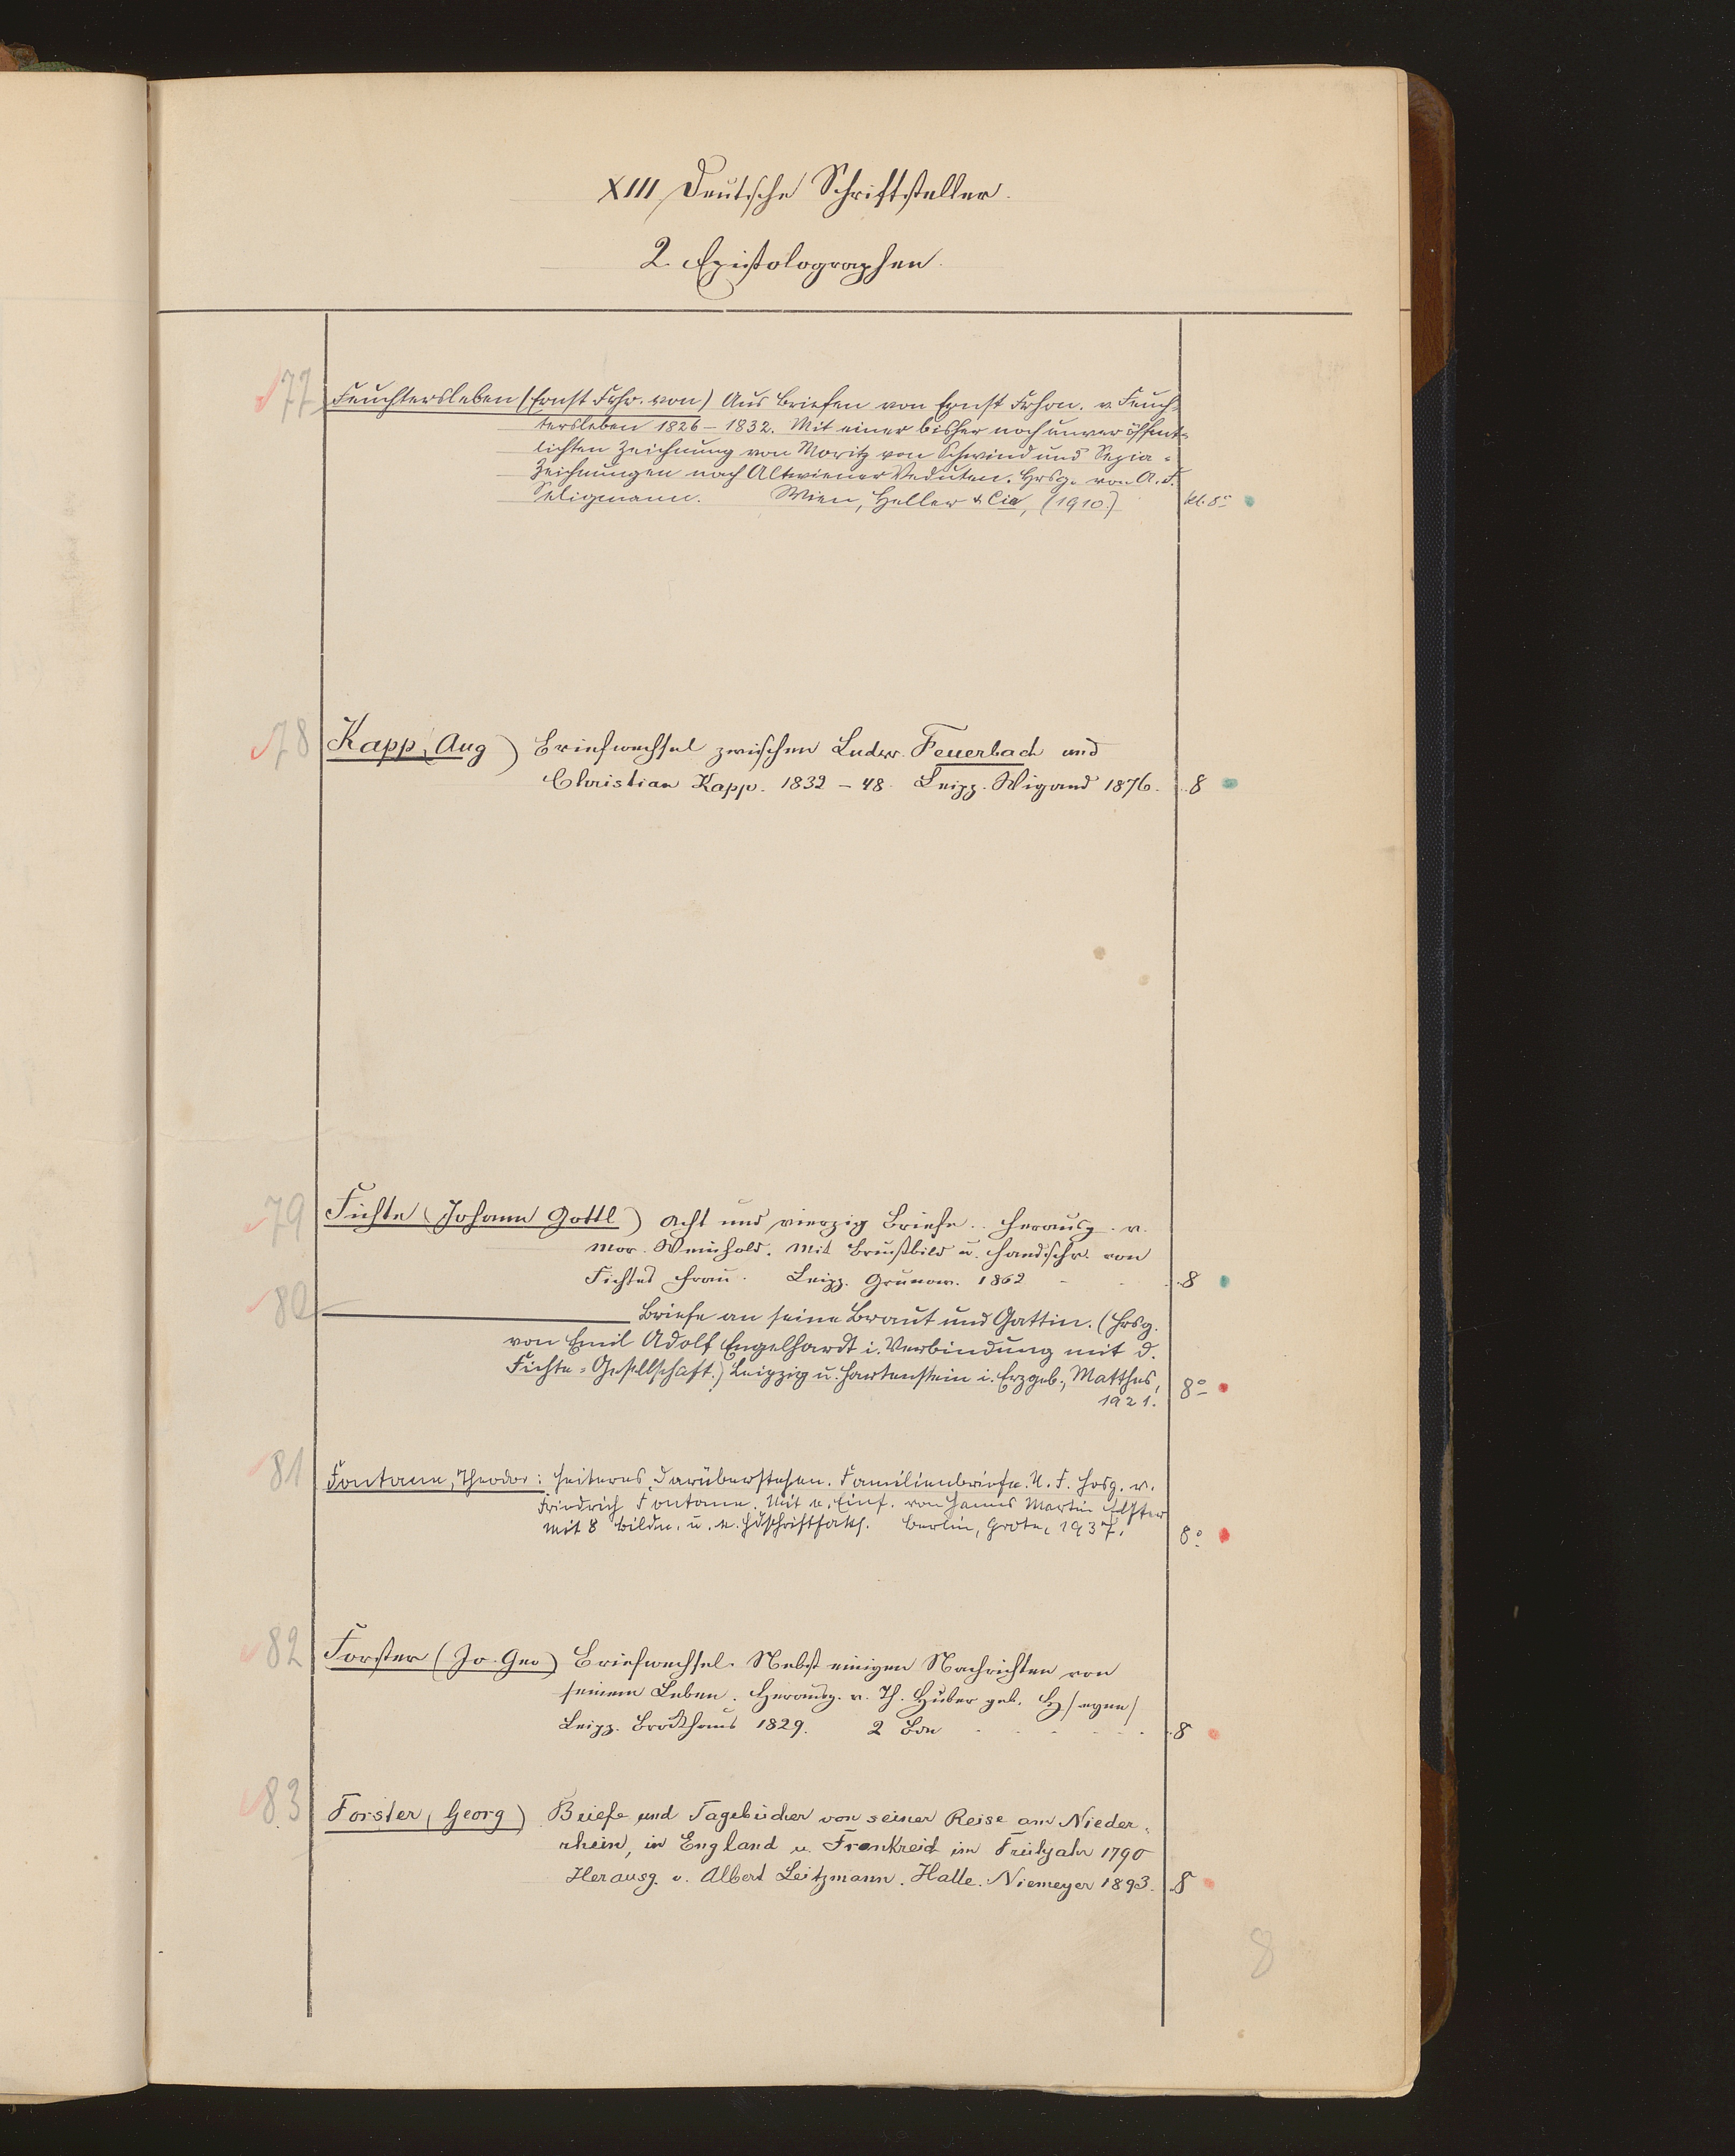 XIII. Deutsche Schriftsteller.
2. Epistolographen.
77 Feuchtersleben (Ernst Frhr. von) Aus Briefen von Ernst Frhrn. v. Feuch-
tersleben 1826–1832. Mit einer bisher noch unveröffent-
lichten Zeichnung von Moritz von Schwind und Sepia-
Zeichnungen nach Altwiener Veduten. Hrsg. von A. F.
Seligmann. Wien, Heller & Cie, (1910.) kl. 8°
78 Kapp, Aug) Briefwechsel zwischen Ludw. Feuerbach und
Christian Kapp. 1832–48. Leipz. Wigand 1876. 8
79 Fichte (Johann Gottl) Acht und vierzig Briefe. Herausg. v.
Mor. Weinhold. Mit Brustbild u. Handschr. von
Fichtes Frau. Leipz. Grunow. 1862 8
80 Briefe an seine Braut und Gattin. (Hrsg.
von Emil Adolf Engelhardt i. Verbindung mit d.
Fichte-Gesellschaft.) Leipzig u. Hartenstein i. Erzgeb., Matthes, 8°
1921.
81 Fontane, Theodor: Heiteres Darüberstehen. Familienbriefe. N. F. Hrsg. v.
Friedrich Fontane. Mit e. Einf. von Hanns Martin Elster
Mit 8 Bildn. u. e. Hdschriftfaks. Berlin, Grote, 1937. 8°
82 Forster (Jo. Geo) Briefwechsel. Nebst einigen Nachrichten von
seinem Leben. Herausg. v. Th. Huber geb. H/eyne/
Leipz. Brockhaus 1829. 2 Bde 8
83 Forster, Georg) Briefe und Tagebücher von seiner Reise am Nieder-
rhein, in England u. Frankreich im Frühjahr 1790
Herausg. v. Albert Leitzmann. Halle. Niemeyer 1893. 8
8